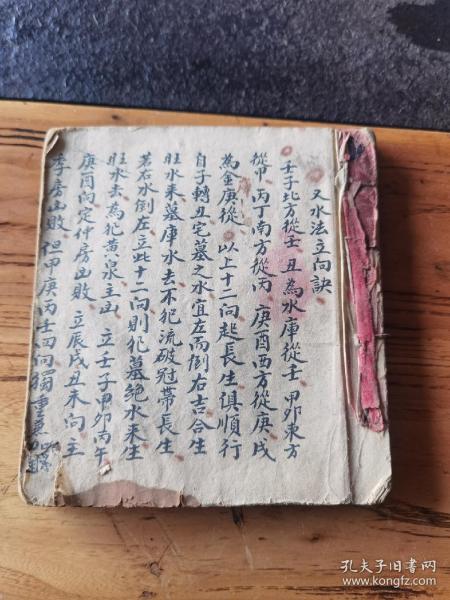 又水法立向訣
壬子北方從壬 丑為水庫從壬 甲卯東方
從甲 丙丁南方從丙 庚酉西方從庚戌
為金庚從 以上十二向起長生俱順行
自子轉丑宅墓之水宜左而倒右吉合生
旺水來墓庫水去不犯流破冠帶長生
若右水倒左立此十二向則犯墓絕水來生
旺水去為犯黃泉主凶 立壬子甲卯丙午
庚酉向定仲房凶敗 立辰戌丑未向主
季房凶敗 但甲庚丙壬四向獨重
孔夫子旧书网
www.kongfz.com